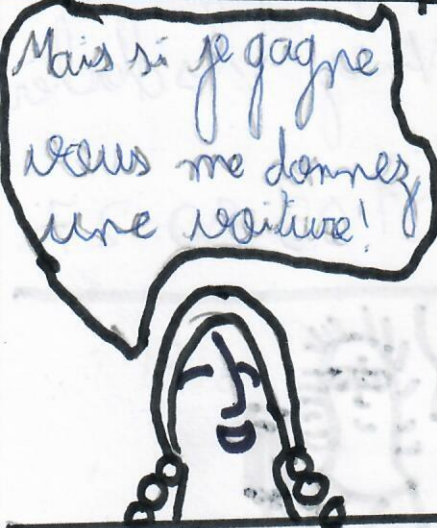 Mais si je gagne
vous me donnez
une voiture!